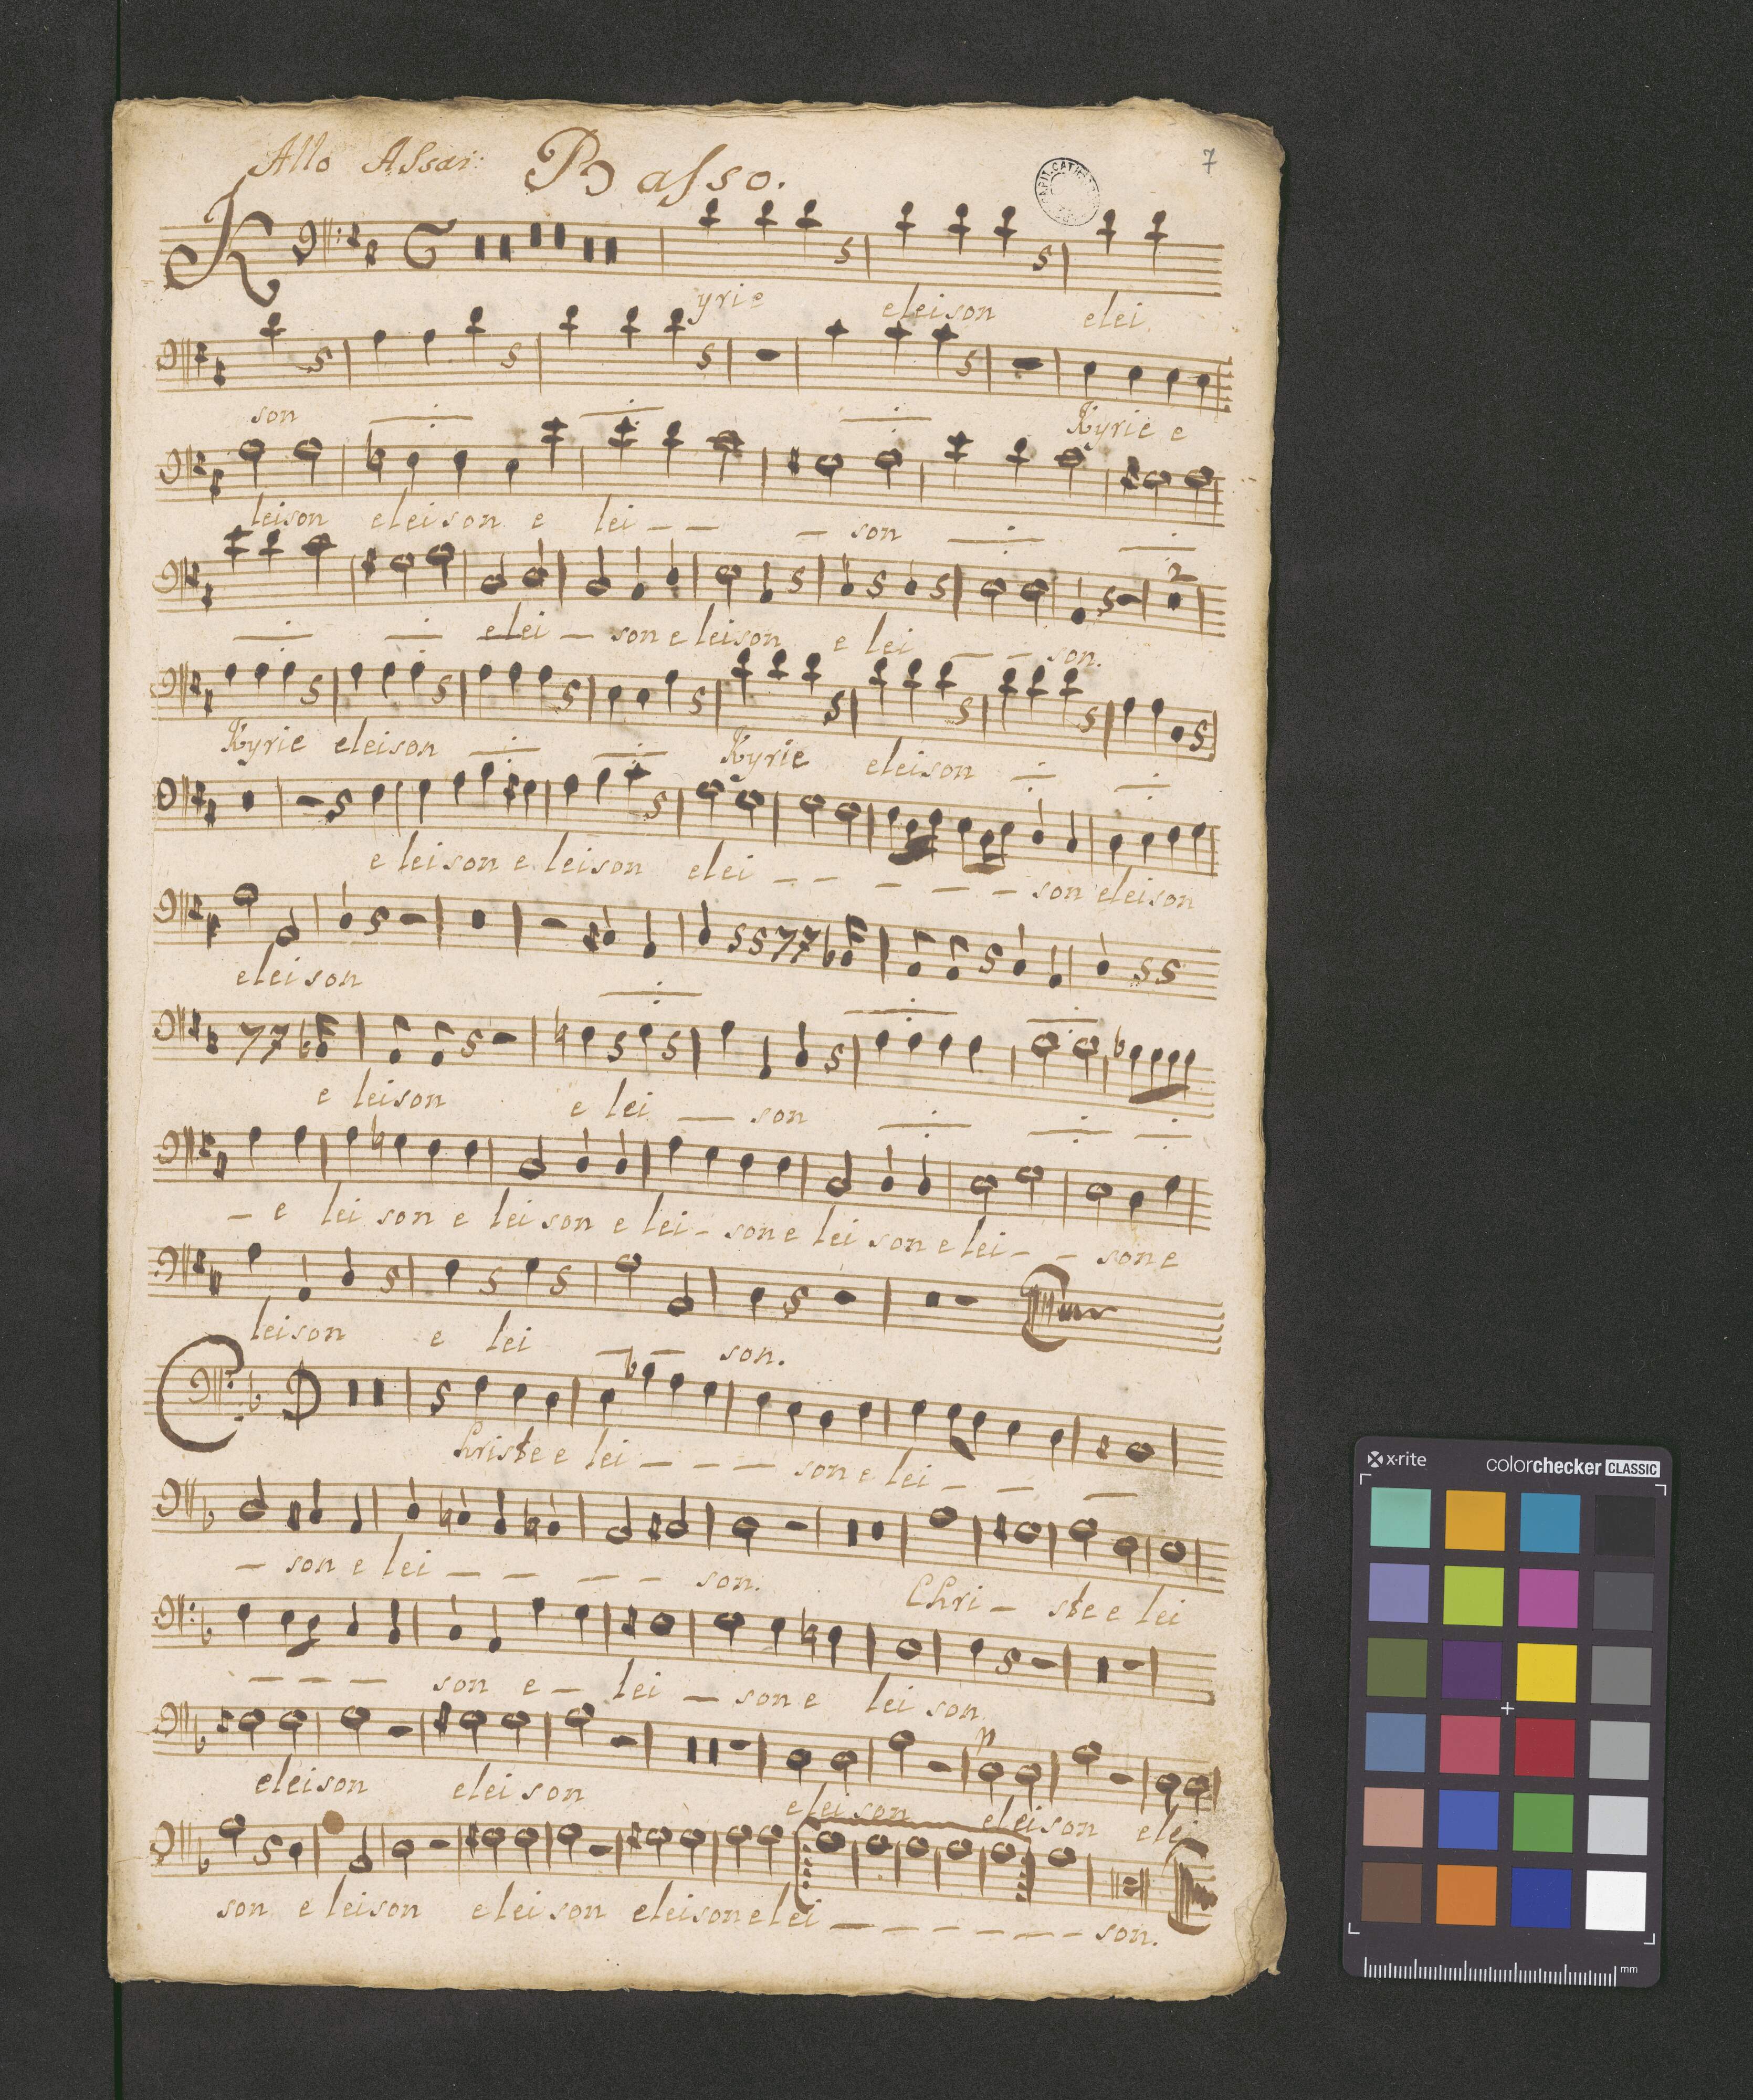 Allo Assai: Basso. 7
K
yrie eleison elei
son Kyrie e
leison eleison e lei son
elei son e leison e lei son.
2
Kyrie eleison Kyrie eleison
e leison e leison elei son eleison
eleison
e leison e lei son
e lei son e lei son e lei son e lei son e lei son e
leison e lei son.
C
hriste e lei son e lei
son e lei son. Christe e lei
son e lei son e lei son
eleison elei son eleison eleison elei
son e leison elei son eleison e lei son.
x-rite colorchecker CLASSIC
mm